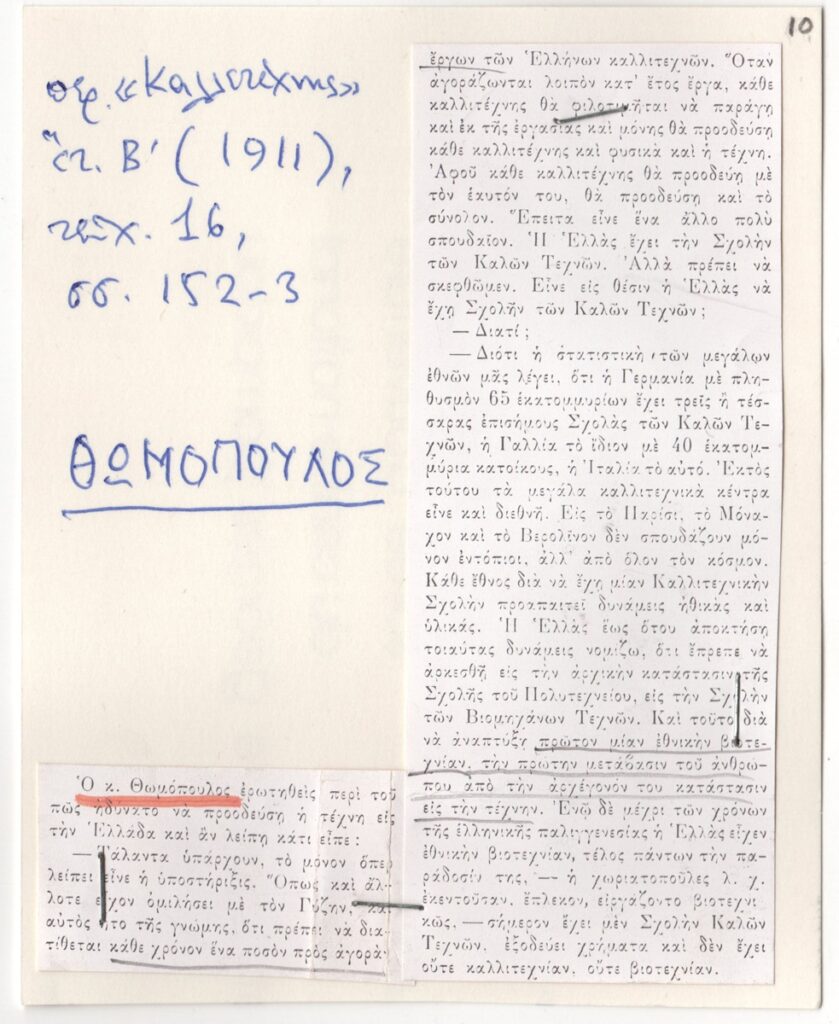 10
περ. «Καλλιτέχνης»
ἔτ. Β' (1911),
τεῦχ. 16,
σσ. 152-3
ΘΩΜΟΠΟΥΛΟΣ
Ὁ κ. Θωμόπουλος ἐρωτηθεὶς περὶ τοῦ
πῶς ἠδύνατο νὰ προοδεύση ἡ τέχνη εἰς
τὴν Ἑλλάδα καὶ ἂν λείπῃ κάτι εἶπε :
— Τάλαντα ὑπάρχουν, τὸ μόνον ὅπερ
λείπει εἶνε ἡ ὑποστήριξις. Ὅπως καὶ ἄλ-
λοτε εἶχον ὁμιλήσει μὲ τὸν Γύζην, καὶ
αὐτὸς ἦτο τῆς γνώμης, ὅτι πρέπει νὰ δια-
τίθεται κάθε χρόνον ἕνα ποσὸν πρὸς ἀγορὰν
ἔργων τῶν Ἑλλήνων καλλιτεχνῶν. Ὅταν
ἀγοράζωνται λοιπὸν κατ' ἔτος ἔργα, κάθε
καλλιτέχνης θὰ φιλοτιμῆται νὰ παράγῃ
καὶ ἐκ τῆς ἐργασίας καὶ μόνης θὰ προοδεύσῃ
κάθε καλλιτέχνης καὶ φυσικὰ καὶ ἡ τέχνη.
Ἀφοῦ κάθε καλλιτέχνης θὰ προοδεύῃ μὲ
τὸν ἑαυτόν του, θὰ προοδεύσῃ καὶ τὸ
σύνολον. Ἔπειτα εἶνε ἕνα ἄλλο πολὺ
σπουδαῖον. Ἡ Ἑλλὰς ἔχει τὴν Σχολὴν
τῶν Καλῶν Τεχνῶν. Ἀλλὰ πρέπει νὰ
σκεφθῶμεν. Εἶνε εἰς θέσιν ἡ Ἑλλὰς νὰ
ἔχῃ Σχολὴν τῶν Καλῶν Τεχνῶν ;
— Διατί ;
— Διότι ἡ στατιστικὴ τῶν μεγάλων
ἐθνῶν μᾶς λέγει, ὅτι ἡ Γερμανία μὲ πλη-
θυσμὸν 65 ἑκατομμυρίων ἔχει τρεῖς ἢ τέσ-
σαρας ἐπισήμους Σχολὰς τῶν Καλῶν Τε-
χνῶν, ἡ Γαλλία τὸ ἴδιον μὲ 40 ἑκατομ-
μύρια κατοίκους, ἡ Ἰταλία τὸ αὐτό. Ἐκτὸς
τούτου τὰ μεγάλα καλλιτεχνικὰ κέντρα
εἶνε καὶ διεθνῆ. Εἰς τὸ Παρίσι, τὸ Μόνα-
χον καὶ τὸ Βερολῖνον δὲν σπουδάζουν μό-
νον ἐντόπιοι, ἀλλ' ἀπὸ ὅλον τὸν κόσμον.
Κάθε ἔθνος διὰ νὰ ἔχῃ μίαν Καλλιτεχνικὴν
Σχολὴν προαπαιτεῖ δυνάμεις ἠθικὰς καὶ
ὑλικάς. Ἡ Ἑλλὰς ἕως ὅτου ἀποκτήσῃ
τοιαύτας δυνάμεις νομίζω, ὅτι ἔπρεπε νὰ
ἀρκεσθῇ εἰς τὴν ἀρχικὴν κατάστασιν τῆς
Σχολῆς τοῦ Πολυτεχνείου, εἰς τὴν Σχολὴν
τῶν Βιομηχάνων Τεχνῶν. Καὶ τοῦτο διὰ
νὰ ἀναπτύξῃ πρῶτον μίαν ἐθνικὴν βιοτε-
χνίαν, τὴν πρώτην μετάβασιν τοῦ ἀνθρώ-
που ἀπὸ τὴν ἀρχέγονόν του κατάστασιν
εἰς τὴν τέχνην. Ἐνῷ δὲ μέχρι τῶν χρόνων
τῆς ἑλληνικῆς παλιγγενεσίας ἡ Ἑλλὰς εἶχεν
ἐθνικὴν βιοτεχνίαν, τέλος πάντων τὴν πα-
ράδοσίν της, — ἡ χωριατοποῦλες λ. χ.
ἐκεντοῦσαν, ἔπλεκον, εἰργάζοντο βιοτεχνι
κῶς, — σήμερον ἔχει μὲν Σχολὴν Καλῶν
Τεχνῶν, ἐξοδεύει χρήματα καὶ δὲν ἔχει
οὔτε καλλιτεχνίαν, οὔτε βιοτεχνίαν.